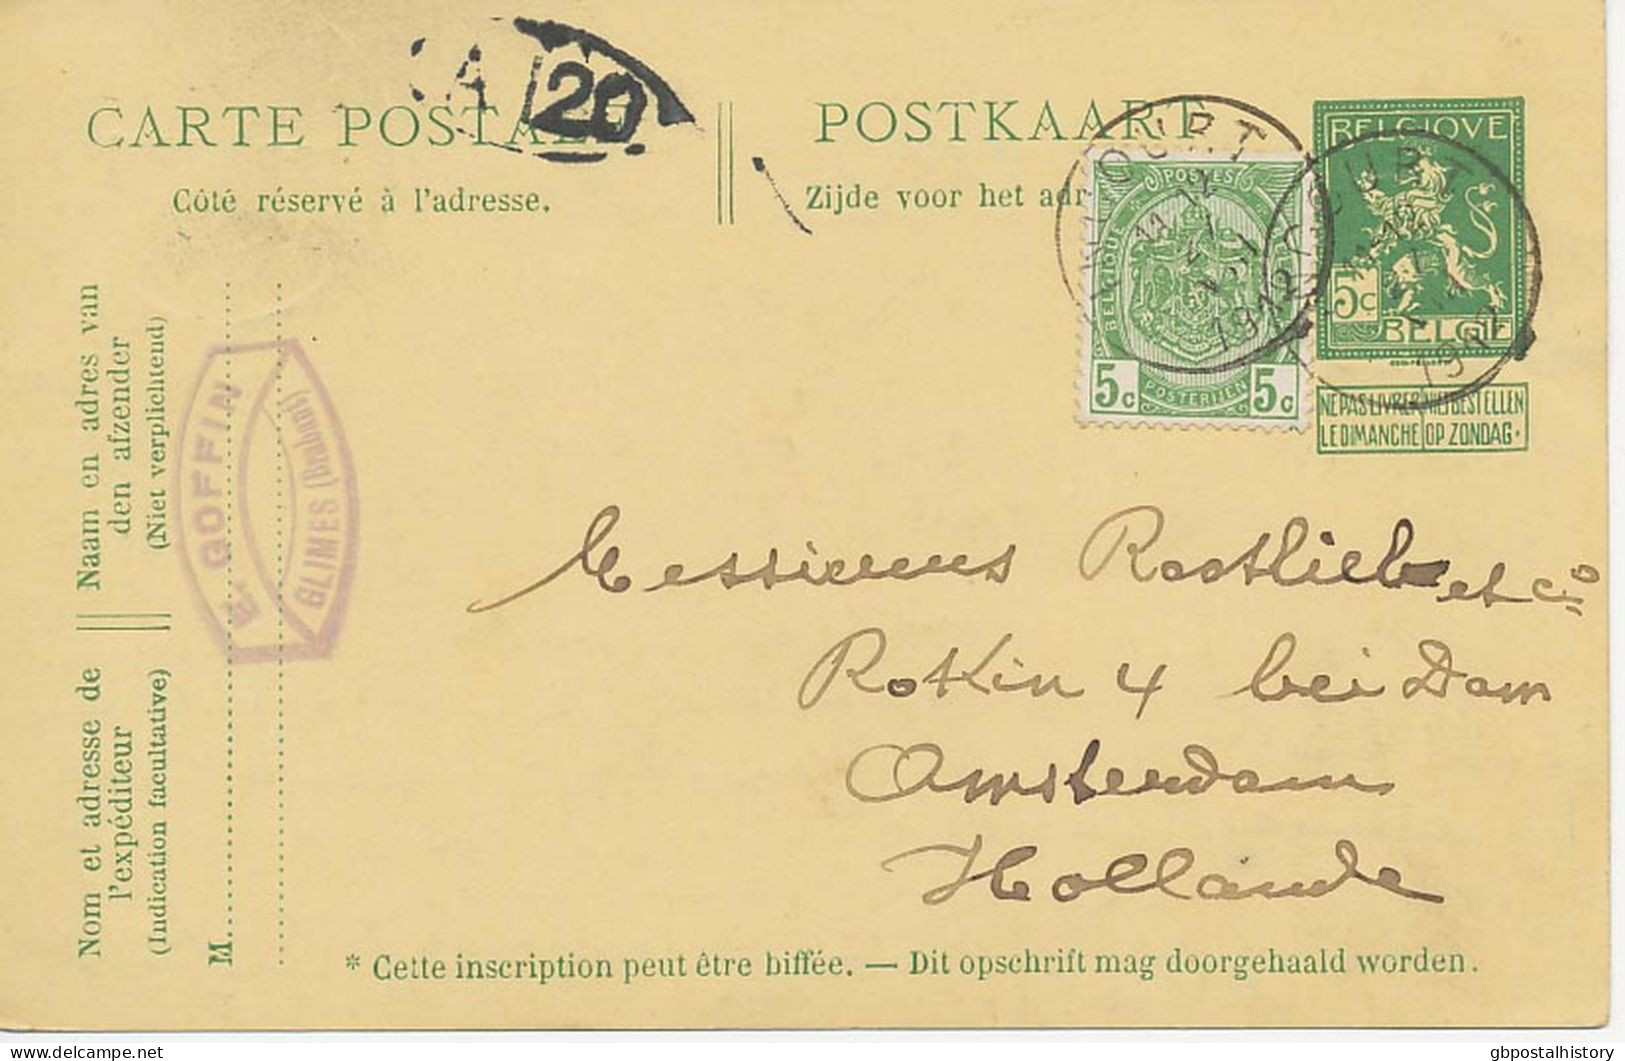 A 20
CARTE POSTALE
POSTKAART
Côté réservé à l'adresse.
Zijde voor het adr
BELGIQUE
BELGIE
5c
POSTES
BELGIQUE
POSTERIJEN
5c 5c
11-12
1912
11-12
1912
NE PAS LIVRER NIET BESTELLEN
LE DIMANCHE OP ZONDAG.
Naam en adres van
den afzender
(Niet verplichtend)
Nom et adresse de
l'expéditeur
(Indication facultative)
M
GOFFIN
GLIMES (Brabant)
Messieurs Rostlieb et Cº
Rokin 4 bei Dam
Amsterdam
Hollande
* Cette inscription peut être biffée. — Dit opschrift mag doorgehaald worden.
delcampe.net
gbpostalhistory